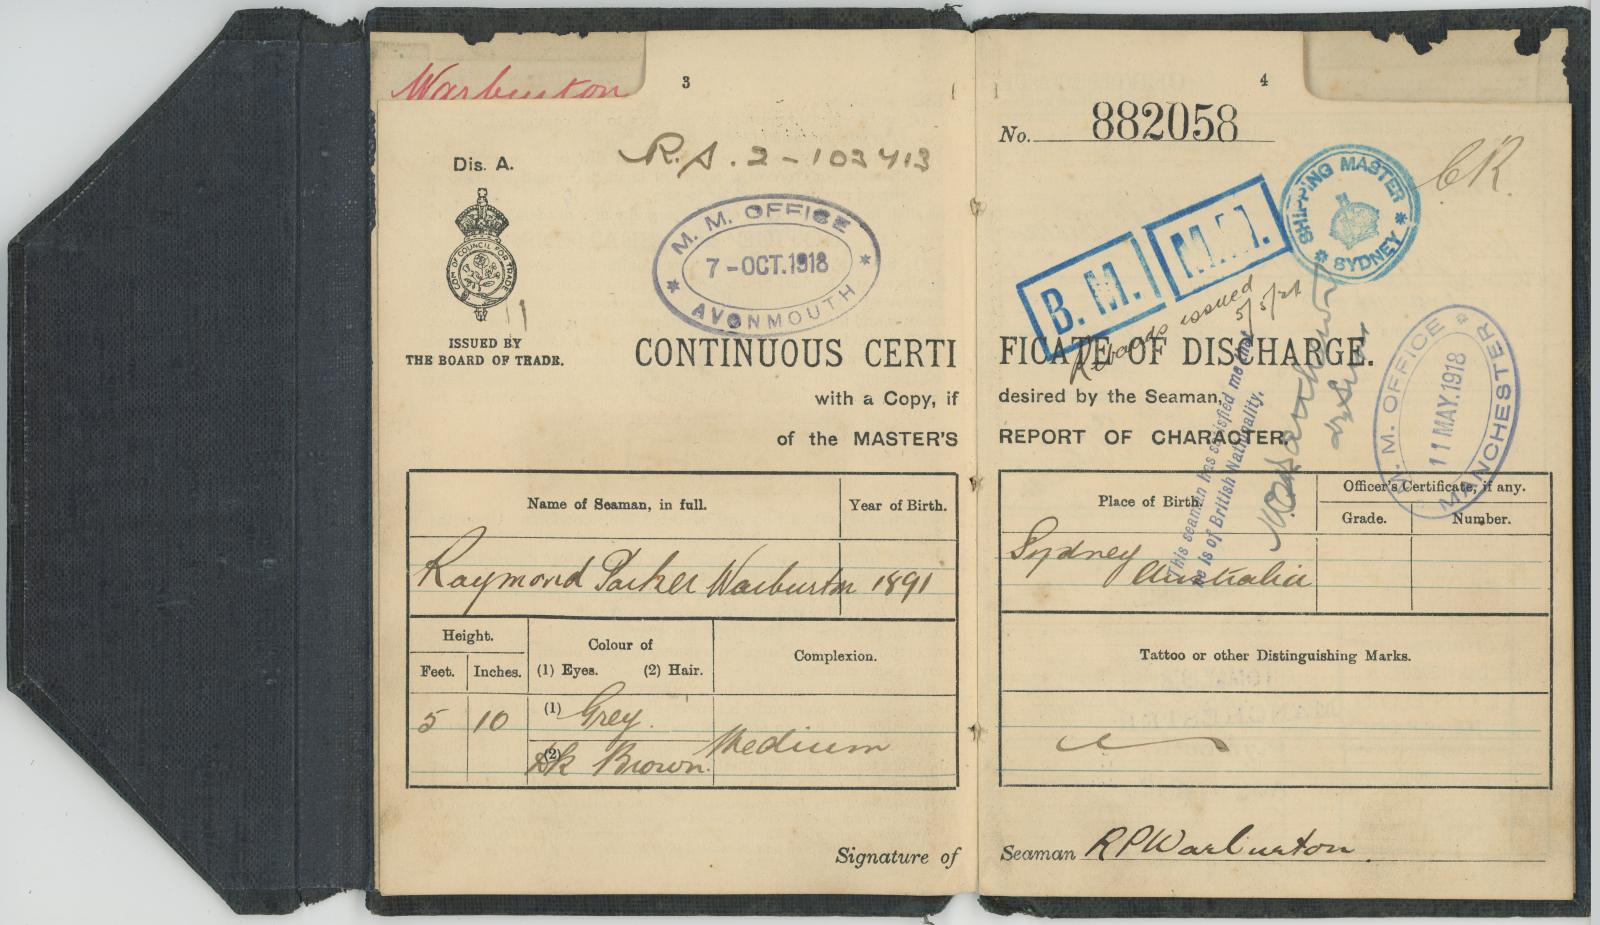 Warburton
3
Dis. A.
R.S. 2 - 103413
COM OF COUNCIL FOR TRADE
M. M. OFFICE
7-OCT.1918
AVONMOUTH
ISSUED BY
THE BOARD OF TRADE.
CONTINUOUS CERTI
with a Copy, if
of the MASTER'S
Name of Seaman, in full.
Year of Birth.
Raymond Parker Warburton 1891
Height.
Feet.
Inches.
Colour of
(1) Eyes. (2) Hair.
Complexion.
5
10
(1) Grey.
(2) Dk Brown.
Medium
Signature of
4
No. 882058
SHIPPING MASTER
SYDNEY
CR.
B. M.
M. M.
issued 5/5/21
FICATE OF DISCHARGE.
desired by the Seaman,
REPORT OF CHARACTER.
This seaman has satisfied me that
he is of British Nationality.
M. M. OFFICE
11 MAY.1918
MANCHESTER
Place of Birth.
Officer's Certificate, if any.
Grade.
Number.
Sydney
Australia
Tattoo or other Distinguishing Marks.
Seaman R P Warburton.